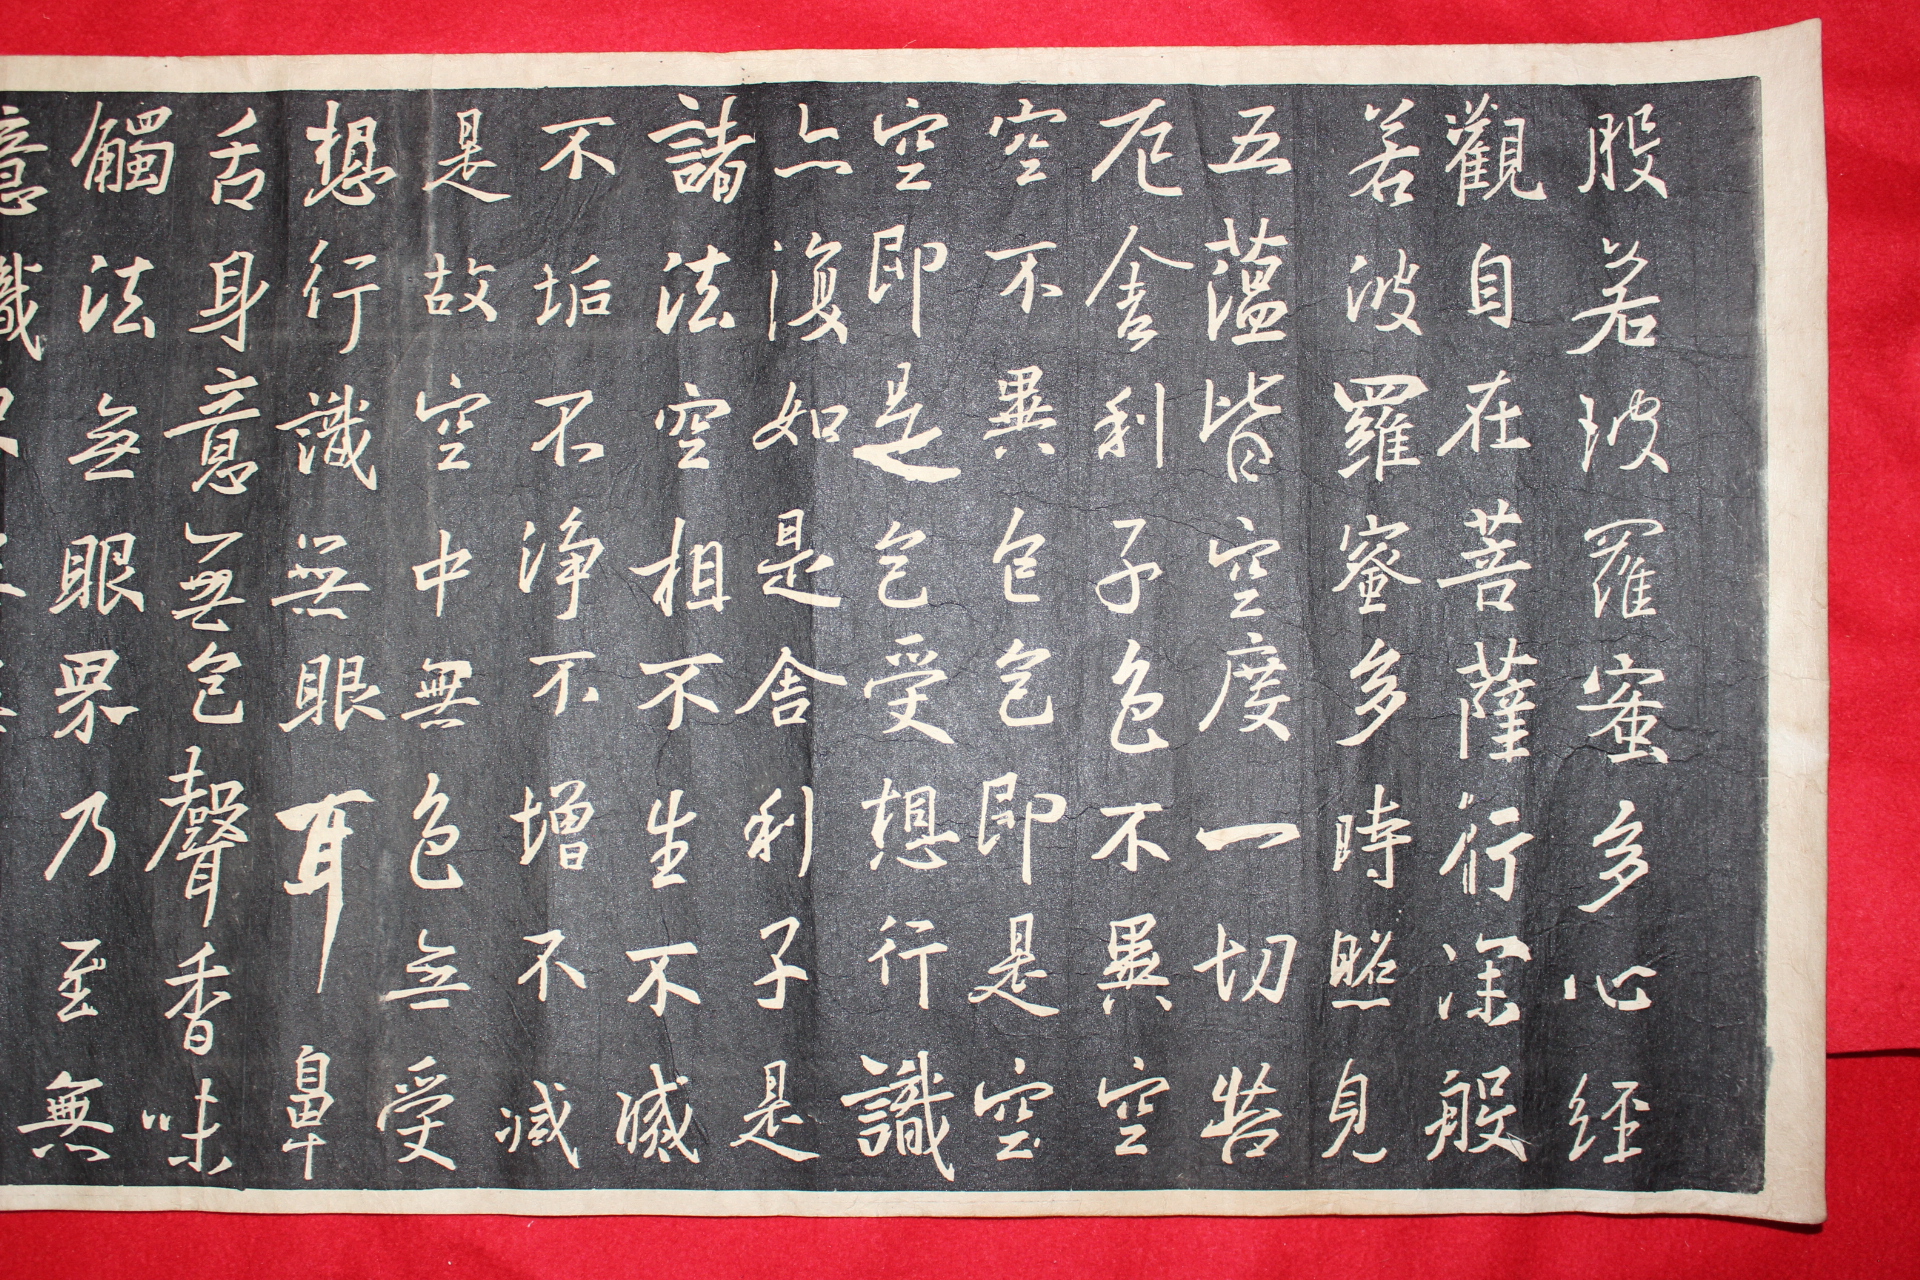 般若波羅蜜多心經
觀自在菩薩行深般
若波羅蜜多時照見
五蘊皆空度一切苦
厄舍利子色不異空
空不異色色即是空
空即是色受想行識
亦復如是舍利子是
諸法空相不生不滅
不垢不淨不增不減
是故空中無色無受
想行識無眼耳鼻
舌身意無色聲香味
觸法無眼界乃至無
意識